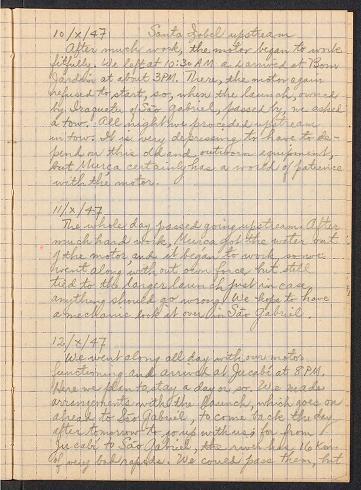 10/X/47 Santa Isabel upstream
After much work, the motor began to work
fitfully. We left at 10:30 AM & arrived at Bom
Jardim at about 3PM. There, the motor again
refused to start, so, when the launch, owned
by Iraquete of São Gabriel, passed by, we asked
a tow. All night we proceeded upstream
in tow. It is very depressing to have to de-
pend on this old and outworn equipment,
but Murca certainly has a world of patience
with the motor.
11/X/47
The whole day passed going upstream. After
much hard work, Murca got the water out
of the motor and it began to work, so we
went along with our own force but still
tied to the larger launch just in case
anything should go wrong. We hope to have
a mechanic look it over in São Gabriel.
12/X/47
We went along all day with our motor
functioning and arrived at Jucabí at 8 P.M.
Here we plan to stay a day or so. We made
arrangements with the launch, which goes on
ahead to São Gabriel, to come back the day
after tomorrow to go up with us; for from
Jucabí to São Gabriel, the river has 16 Km
of very bad rapids. We could pass them, but